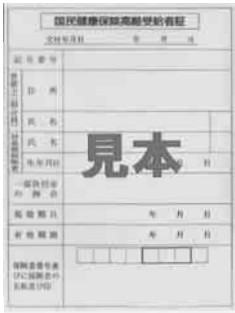 国民健康保険高齢受給者証
交付年月日　年　月　日
記号番号
住所
氏名
氏名
生年月日　日
見本
一部負担金
の割合
発効期日　年　月　日
有効期限　年　月　日
保険者番号並
びに保険者の
名称及び印